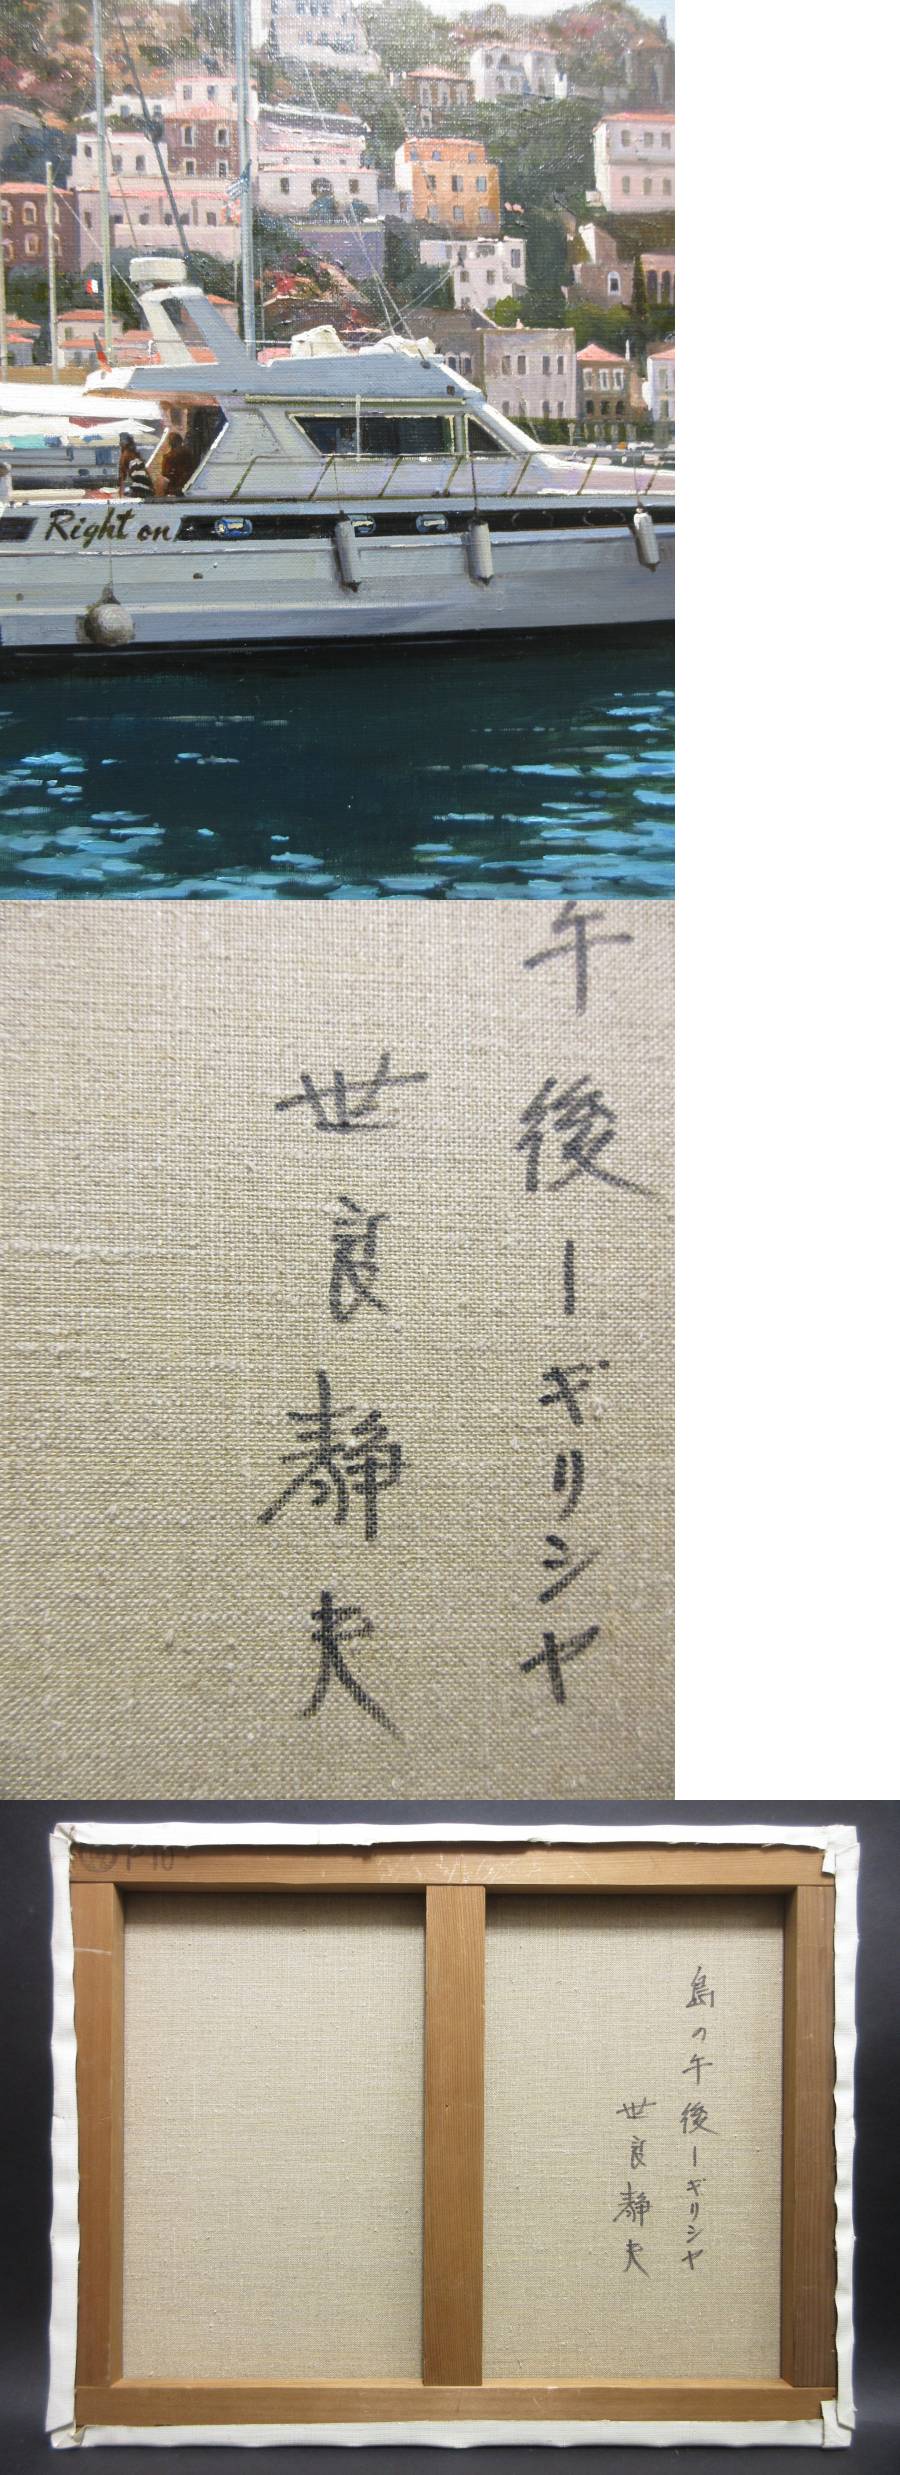 Right on
午後ーギリシヤ
世良静夫
P10
島の午後ーギリシヤ
世良静夫